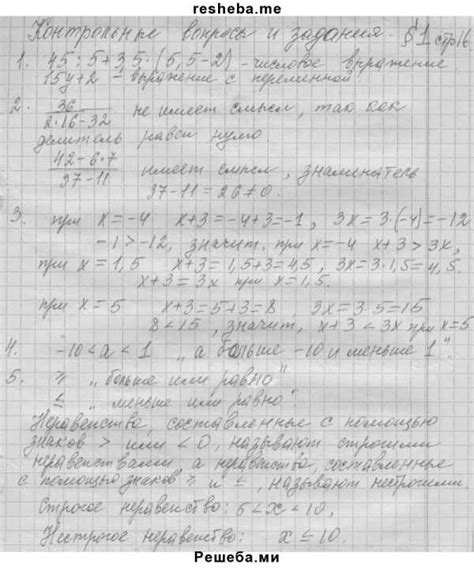 resheba.me
Контрольные вопросы и задания. §1 стр16.
1. 45 : 5 + 3,5 · (5,5 − 2) − числовое выражение
15y + 2 − выражение с переменной.
2. 36 / 2·16−32 не имеет смысл, так как
делитель равен нулю
42−6·7 / 37−11 имеет смысл, знаменатель
37−11 = 26 ≠ 0.
3. при x=−4 x+3=−4+3=−1, 3x=3·(−4)=−12
−1>−12, значит, при x=−4 x+3>3x,
при x=1,5 x+3=1,5+3=4,5, 3x=3·1,5=4,5.
x+3=3x при x=1,5.
при x=5 x+3=5+3=8, 3x=3·5=15
8<15, значит, x+3<3x при x=5
4. −10<a<1 „a больше −10 и меньше 1".
5. ≥ „больше или равно"
≤ „меньше или равно".
Неравенства, составленные с помощью
знаков > или <0, называют строгими
неравенствами, а неравенства, составленные
с помощью знаков ≥ и ≤, называют нестрогими.
Строгое неравенство: 5<x<10,
Нестрогое неравенство: x≤10.
Решеба.ми